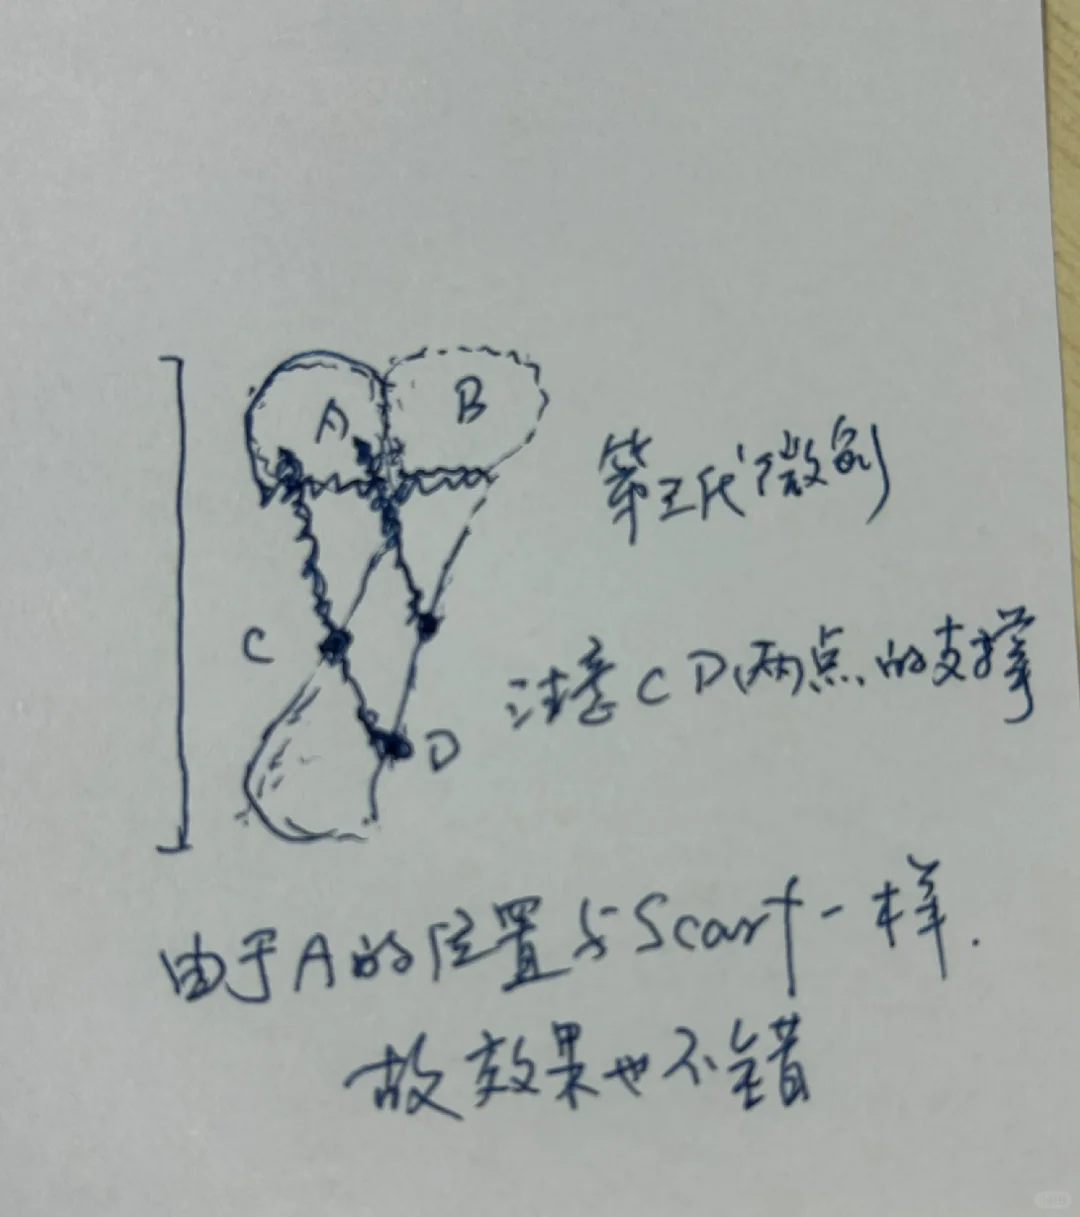 A
B
第三代“微创
C
注意CD两点的支撑
D
由于A的位置与Scarf一样.
故效果也不错